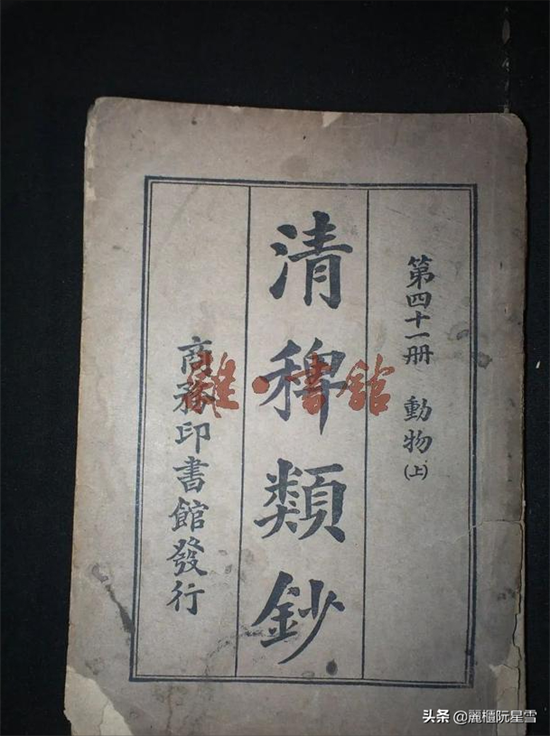 第四十一册 動物(上)
清稗類鈔
商務印書館發行
頭条 @麗櫃阮星雪